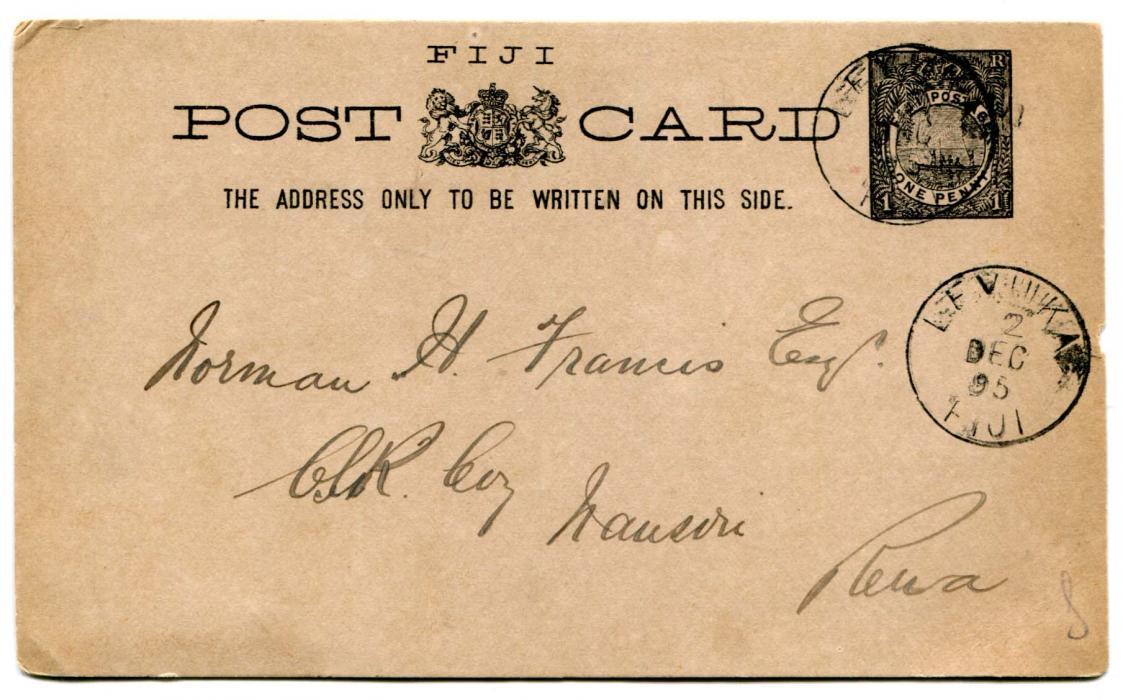 FIJI
POST CARD
THE ADDRESS ONLY TO BE WRITTEN ON THIS SIDE.
R
POSTAGE
ONE PENNY
1 1
LEVUKA
2
DEC
95
FIJI
Norman H. Francis Esq.
CSR. Coy
Nausori
Rewa